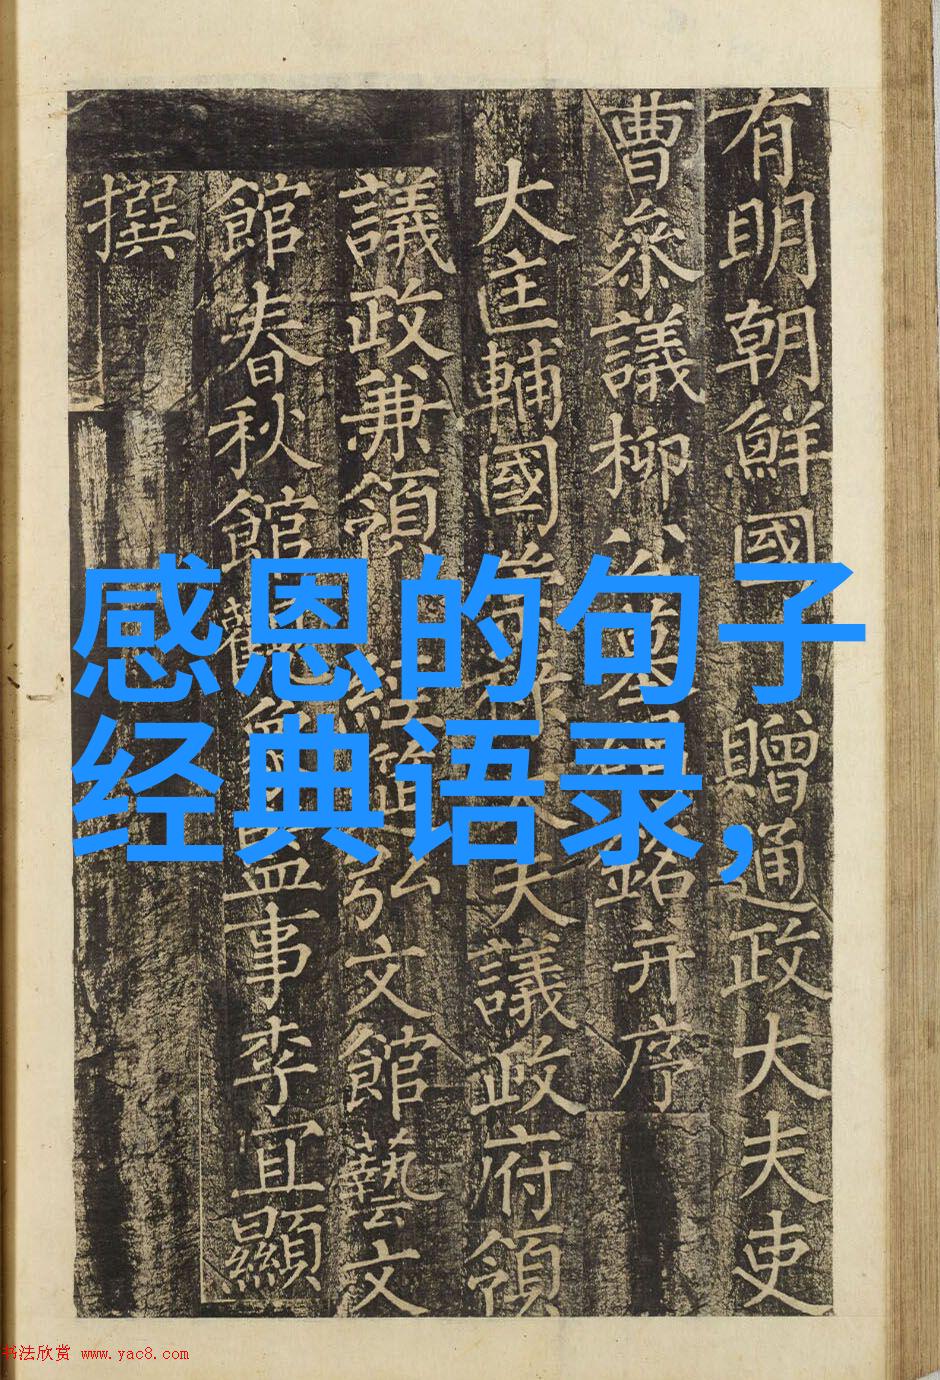 有明朝鮮國 贈通政大夫吏
曹叅議柳公墓銘并序
大匡輔國崇祿大夫議政府領
議政兼領經筵弘文館藝文
館春秋館觀象監事李宜顯
撰
感恩的句子
经典语录,
书法欣赏 www.yac8.com